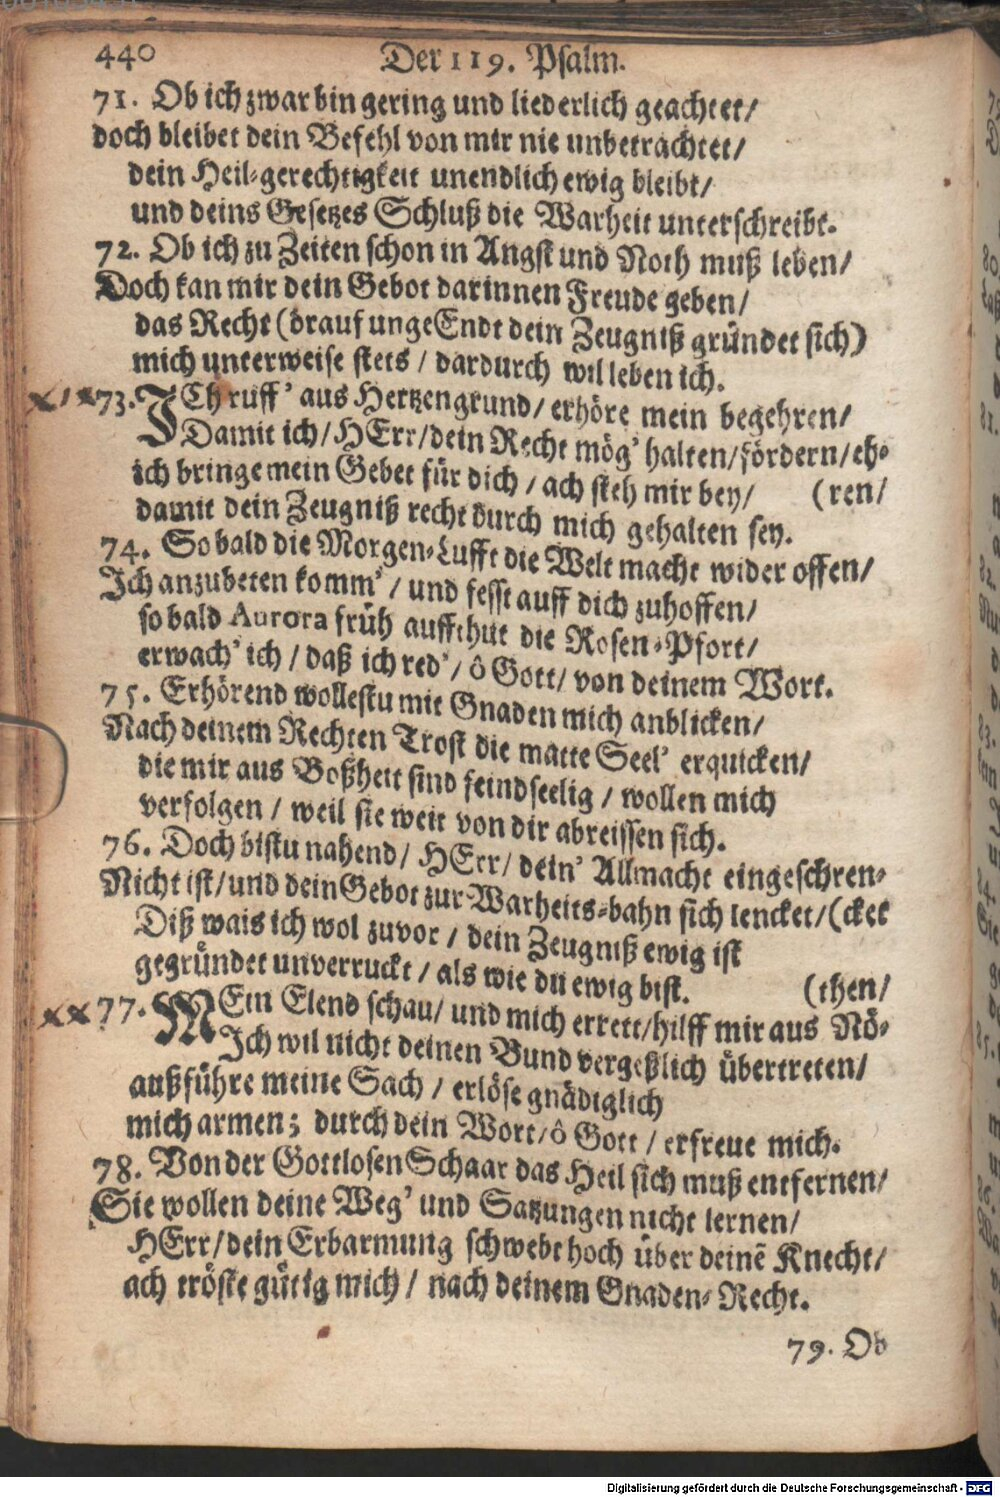 440 Der 119. Psalm.
71. Ob ich zwar bin gering und liederlich geachtet/
doch bleibet dein Befehl von mir nie unbetrachtet/
dein Heil-gerechtigkeit unendlich ewig bleibt/
und deins Gesetzes Schluß die Warheit unterschreibt.
72. Ob ich zu Zeiten schon in Angst und Noth muß leben/
Doch kan mir dein Gebot darinnen Freude geben/
das Recht (drauf ungeEndt dein Zeugniß gründet sich)
mich unterweise stets / dardurch wil leben ich.
73. ICh ruff' aus Hertzengrund/ erhöre mein begehren/
Damit ich/ HErr/ dein Recht mög' halten/ fördern/ eh-
ich bringe mein Gebet für dich / ach steh mir bey/ (ren/
damit dein Zeugniß recht durch mich gehalten sey.
74. So bald die Morgen-Lufft die Welt macht wider offen/
Ich anzubeten komm' / und fesst auff dich zuhoffen/
so bald Aurora früh auffthut die Rosen-Pfort/
erwach' ich / daß ich red'/ ô Gott/ von deinem Wort.
75. Erhörend wollestu mit Gnaden mich anblicken/
Nach deinem Rechten Trost die matte Seel' erquicken/
die mir aus Boßheit sind feindseelig / wollen mich
verfolgen / weil sie weit von dir abreissen sich.
76. Doch bistu nahend/ HErr/ dein' Allmacht eingeschren-
Nicht ist/ und dein Gebot zur Warheits-bahn sich lencket/ (cket
Diß wais ich wol zuvor / dein Zeugniß ewig ist
gegründet unverruckt / als wie du ewig bist. (then/
77. MEin Elend schau/ und mich errett/ hilff mir aus Nö-
Ich wil nicht deinen Bund vergeßlich übertreten/
außführe meine Sach / erlöse gnädiglich
mich armen; durch dein Wort/ ô Gott / erfreue mich.
78. Von der Gottlosen Schaar das Heil sich muß entfernen/
Sie wollen deine Weg' und Satzungen nicht lernen/
HErr/ dein Erbarmung schwebt hoch über deinẽ Knecht/
ach tröste gütig mich / nach deinem Gnaden-Recht.
79. Ob
Digitalisierung gefördert durch die Deutsche Forschungsgemeinschaft - DFG